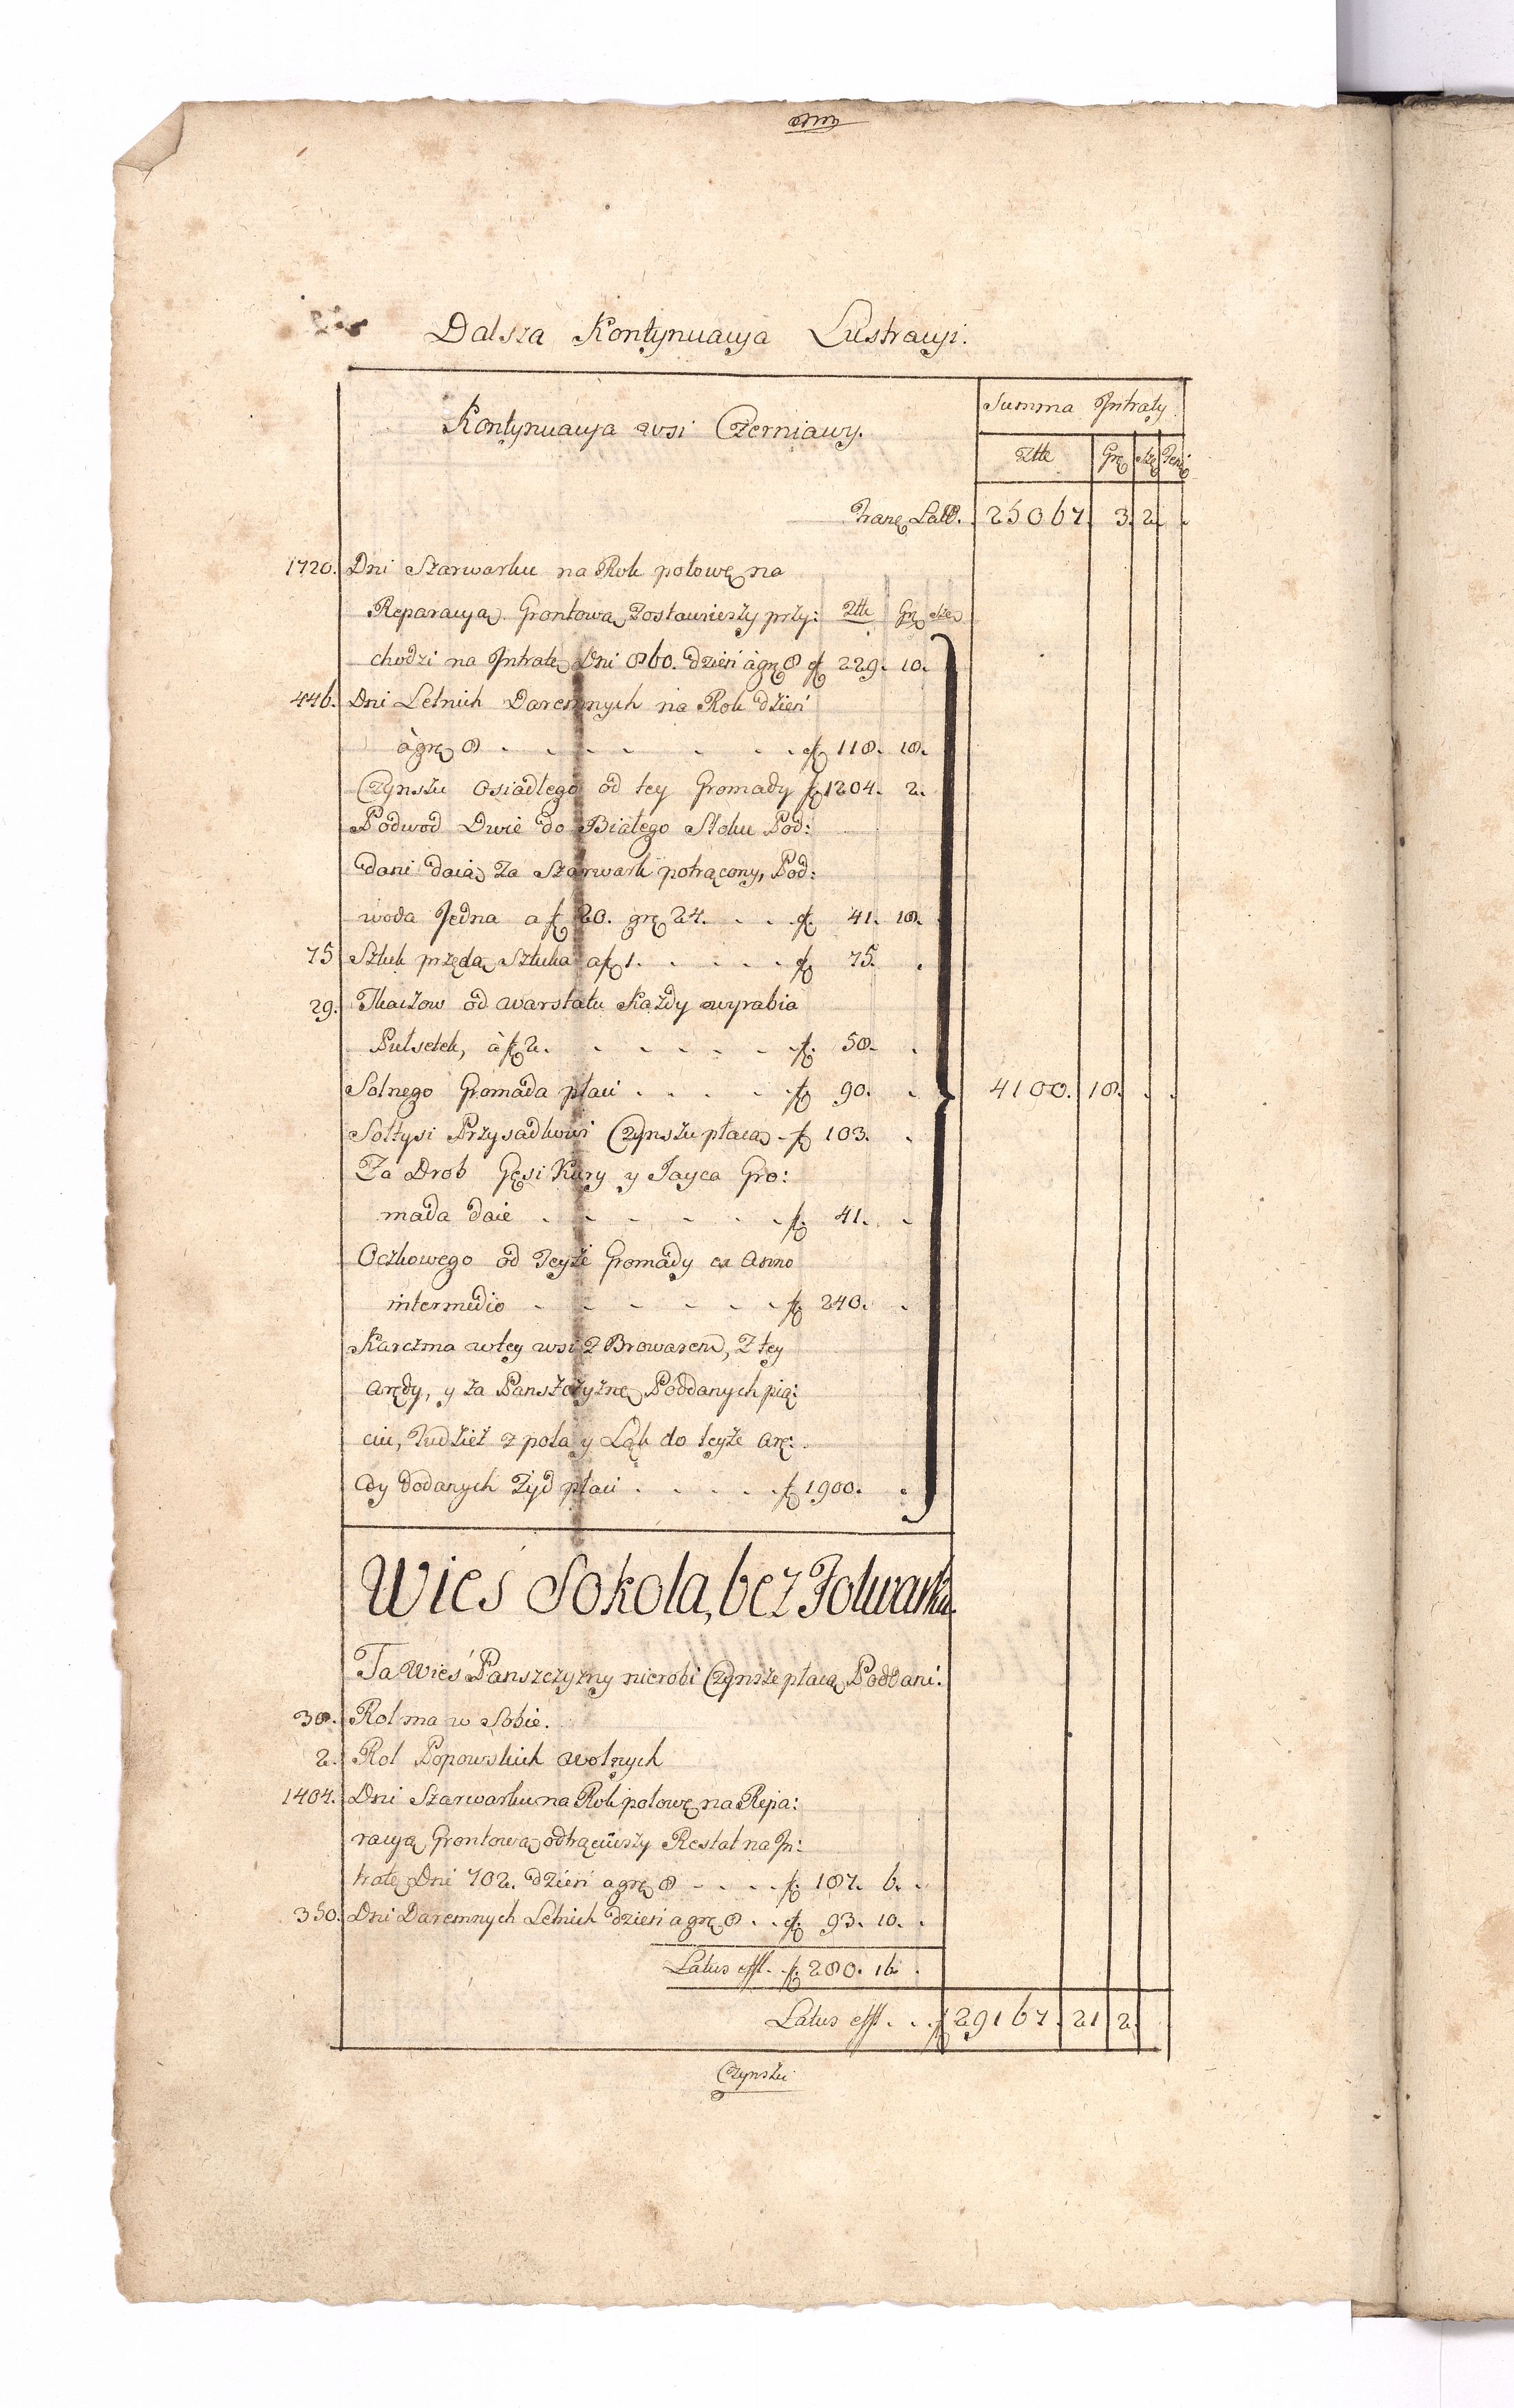 Dalsza Kontynuacya Lustracyi.
Kontynuacya wsi Czerniawy.
Summa Intraty
Ztt Grę Szę Fenę
Tranę Latt. 25067. 3. 2. .
1720. Dni Szarwarku na Rok połowę na
Reparacyą Grontową zostawieszy przy: Ztt Grę Szę
chodzi na Intratę Dni 860. dzień à grę 8 f 229. 10.
446. Dni Letnich Daremnych na Rok dzień
à grę 8 . . . . . . . f 118. 18.
Czynszu Osiadłego od tey Gromady f 1204. 2.
Podwod Dwie do Białego Stoku Pod:
dani daią za Szarwark potrącony, Pod:
woda Jedna a f 20. grę 24. . . f 41. 18.
75 Sztuk przędą Sztuka a f 1. . . . . f 75. .
29. Tkaczow od warstatu Każdy wyrabia
Pułsetek, à f 2. . . . . . . f. 58. .
Solnego Gromada płaci . . . . f 90. . 4100. 18. . .
Sołtysi Przysadkowi Czynszu płacą f 103. .
Za Drob Gęsi Kury y Jayca Gro:
mada daie . . . . . . f. 41. .
Oczkowego od Teyże Gromady ex Anno
intermedio . . . . . . f 240. .
Karczma w tey wsi z Browarem, Z tey
Arędy, y za Panszczyznę Poddanych pię:
ciu, Tudzież z pola y Łąk do teyże Arę:
dy dodanych Żyd płaci . . . . f 1900. .
Wieś Sokola, bez Folwarku
Ta Wieś Panszczyzny nierobi Czynsze płacą Poddani.
38. Rol ma w Sobie.
2. Rol Popowskich wolnych
1404. Dni Szarwarku na Rok połowę na Repa:
racyą Grontową odtrąciwszy Restat na In:
tratę Dni 702. dzień a grę 8 . . . f. 187. 6. .
350. Dni Daremnych Letnich dzień a grę 8 . . f. 93. 10. .
Latus efft. f. 280. 16.
Latus efft. . . f 29167. 21 2.
Czynszu